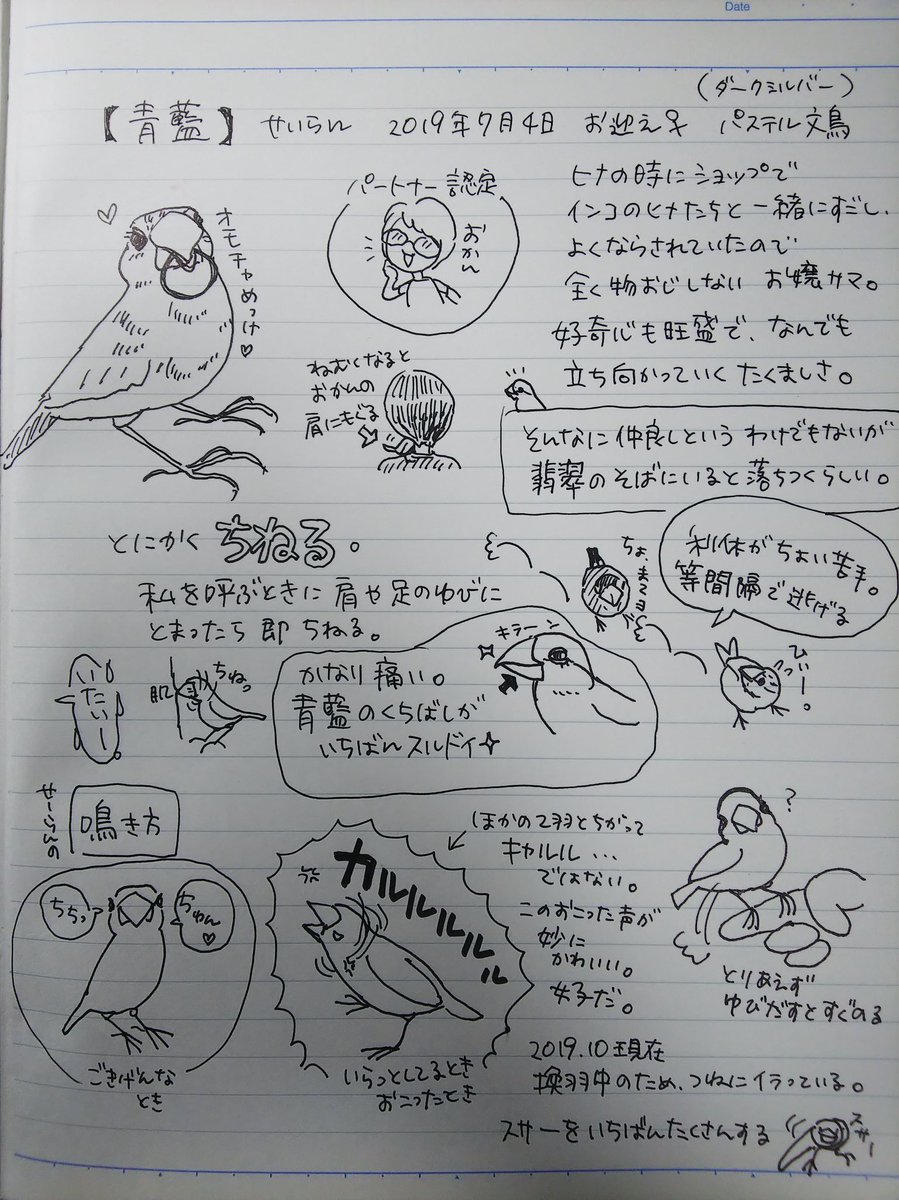 Date
(ダークシルバー)
【青藍】 せいらん 2019年7月4日 お迎え♀ パステル文鳥
オモチャめっけ♡
パートナー認定
おかん
ヒナの時にショップで
インコのヒナたちと一緒にすだし、
よくならされていたので
全く物おじしない お嬢サマ。
好奇心も旺盛で、なんでも
立ち向かっていく たくましさ。
ねむくなると
おかんの
肩にもぐる
そんなに仲良しという わけでもないが
翡翠のそばにいると落ちつくらしい。
とにかく ちねる。
私を呼ぶときに 肩や足のゆびに
とまったら 即 ちねる。
ちょ、まてヨ
利休がちょい苦手。
等間隔で逃げる
ひぃー。
いたいー。
肌
ちねっ
かなり痛い。
青藍のくちばしが
いちばんスルドイ
キラーン
せーらんの
鳴き方
ちちっ
ちゅん♡
ごきげんな
とき
カルルルルルル
いらっとしてるとき
おこったとき
ほかの2羽とちがって
キャルル…
ではない。
このおこった声が
妙に
かわいい。
女子だ。
?
とりあえず
ゆびだすとすぐのる
2019.10現在
換羽中のため、つねにイラっている。
スサーをいちばんたくさんする
スサー